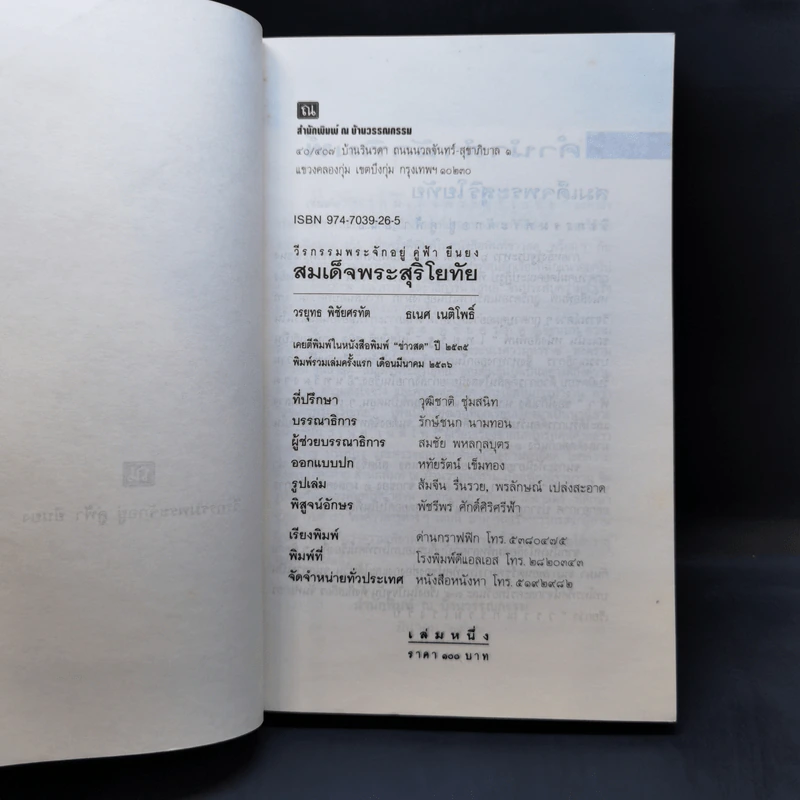 ณ
สำนักพิมพ์ ณ บ้านวรรณกรรม
๔๐/๔๐๗ บ้านวินรดา ถนนนวลจันทร์-สุขาภิบาล ๑
แขวงคลองกุ่ม เขตบึงกุ่ม กรุงเทพฯ ๑๐๒๓๐
ISBN 974-7039-26-5
วีรกรรมพระจักอยู่ คู่ฟ้า ยืนยง
สมเด็จพระสุริโยทัย
วรยุทธ พิชัยศรทัต ธเนศ เนติโพธิ์
เคยตีพิมพ์ในหนังสือพิมพ์ "ข่าวสด" ปี ๒๕๓๕
พิมพ์รวมเล่มครั้งแรก เดือนมีนาคม ๒๕๓๖
ที่ปรึกษา วุฒิชาติ ชุ่มสนิท
บรรณาธิการ รักษ์ชนก นามทอน
ผู้ช่วยบรรณาธิการ สมชัย พหลกุลบุตร
ออกแบบปก หทัยรัตน์ เข็มทอง
รูปเล่ม ส้มจีน รื่นรวย, พรลักษณ์ เปล่งสะอาด
พิสูจน์อักษร พัชรีพร ศักดิ์ศิริศรีฟ้า
เรียงพิมพ์ ด่านกราฟฟิก โทร. ๕๓๘๐๔๗๕
พิมพ์ที่ โรงพิมพ์ดีแอลเอส โทร. ๒๘๒๐๓๔๓
จัดจำหน่ายทั่วประเทศ หนังสือหนังหา โทร. ๕๑๙๒๙๘๒
เล่มหนึ่ง
ราคา ๑๐๐ บาท